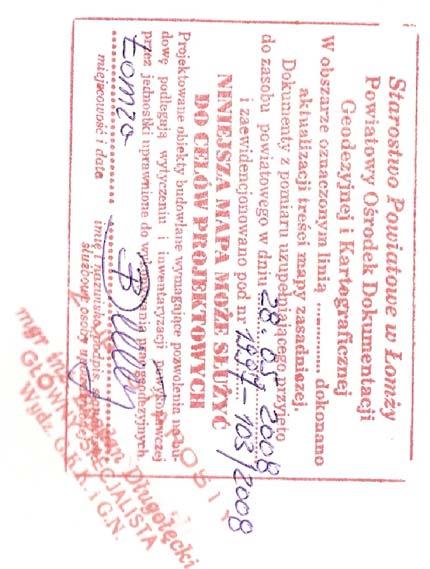 Starostwo Powiatowe w Łomży
Powiatowy Ośrodek Dokumentacji
Geodezyjnej i Kartograficznej
W obszarze oznaczonym linią ............ dokonano
aktualizacji treści mapy zasadniczej.
Dokumenty z pomiaru uzupełniającego przyjęto
do zasobu powiatowego w dniu 28.05 2008
i zaewidencjonowano pod nr 1397-103/2008
NINIEJSZA MAPA MOŻE SŁUŻYĆ
DO CELÓW PROJEKTOWYCH
Projektowane obiekty budowlane wymagające pozwolenia na bu-
dowę podlegają wytyczeniu i inwentaryzacji powykonawczej
przez jednostki uprawnione do wykonywania prac geodezyjnych
Łomża
miejscowość i data
imię i nazwisko, podpis
służbowe osoby
mgr inż. Jan Długołęcki
GŁÓWNY SPECJALISTA
Wydz. G.K.K. i G.N.